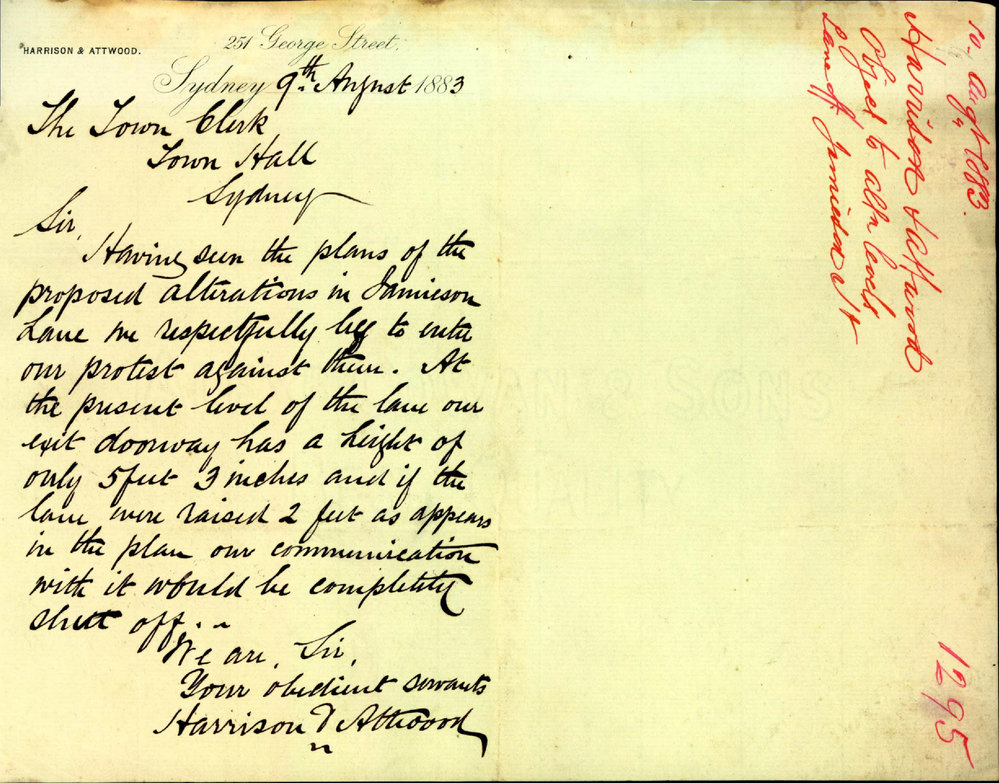 HARRISON & ATTWOOD.
251 George Street,
Sydney 9th August 1883
The Town Clerk
Town Hall
Sydney
Sir,
Having seen the plans of the
proposed alterations in Jamieson
Lane we respectfully beg to enter
our protest against them. At
the present level of the lane our
exit doorway has a height of
only 5 feet 3 inches and if the
lane were raised 2 feet as appears
in the plan our communication
with it would be completely
shut off.
We are, Sir,
Your obedient servants
Harrison & Attwood
10 Augt 1883.
Harrison & Attwood
Object to altn levels
Lane off Jamieson St
1295
& SONS